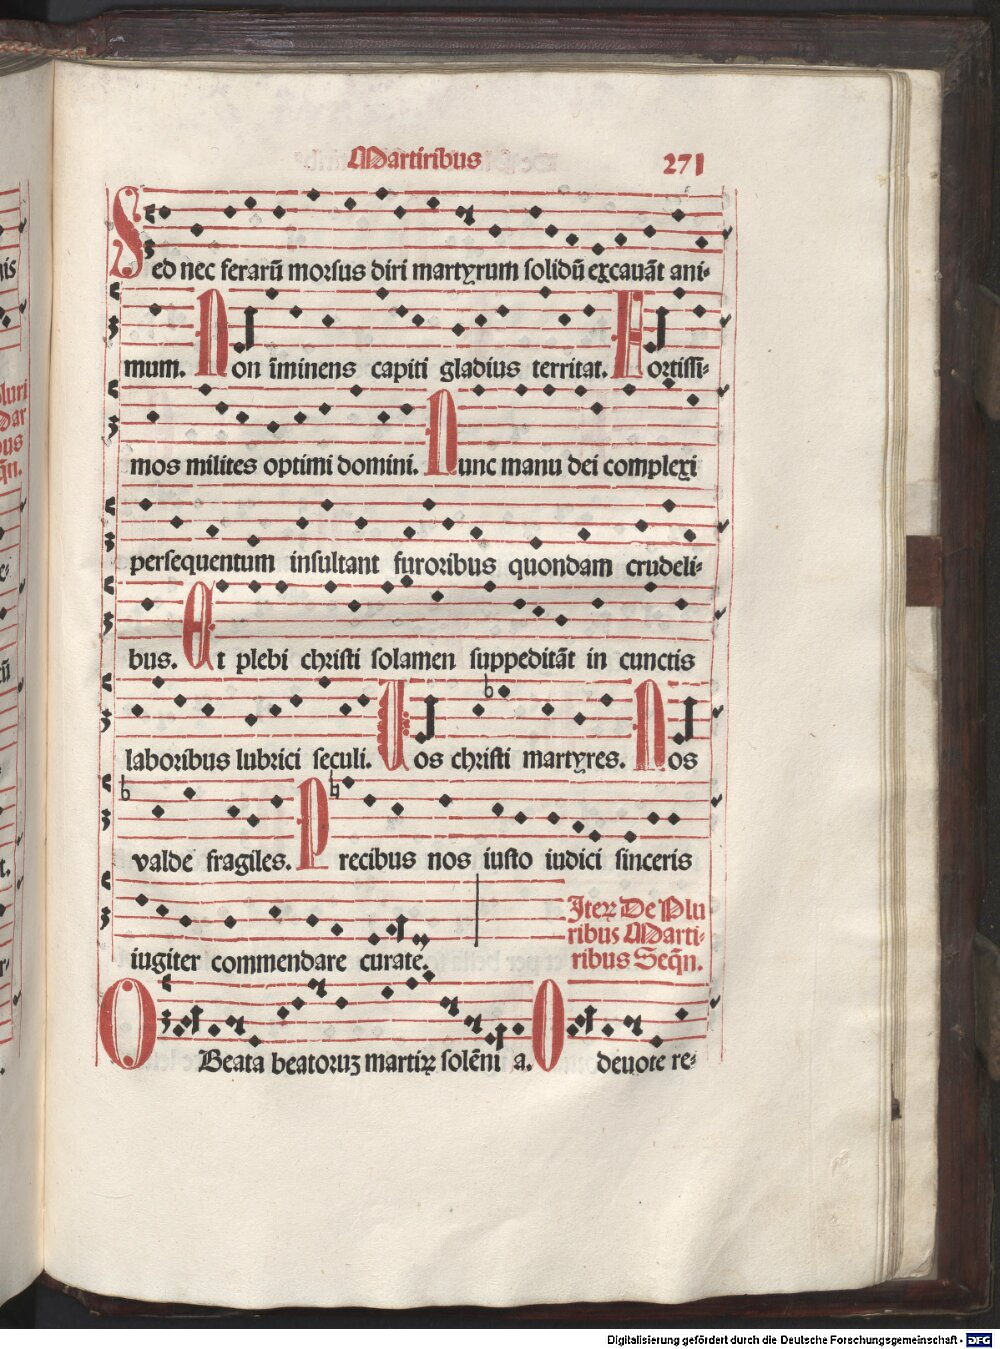 Martiribus 271
Sed nec ferarū morsus diri martyrum solidū excauāt ani-
mum. Non īminens capiti gladius territat. Fortissi-
mos milites optimi domini. Nunc manu dei complexi
persequentum insultant furoribus quondam crudeli-
bus. Et plebi christi solamen suppeditāt in cunctis
laboribus lubrici seculi. Uos christi martyres. Nos
valde fragiles. Precibus nos iusto iudici sinceris
iugiter commendare curate.
Iteꝝ De Plu
ribus Marti-
ribus Seqn̄.
O Beata beatoruꝫ martiꝝ solēni a. O deuote re-
Digitalisierung gefördert durch die Deutsche Forschungsgemeinschaft - DFG